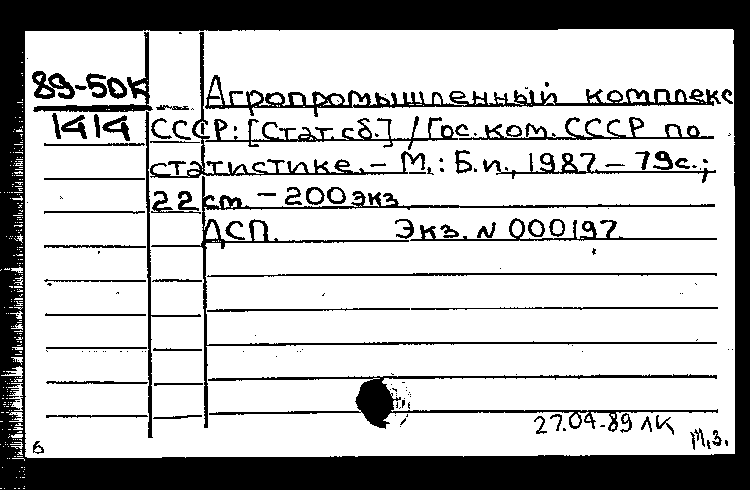 89-50К Агропромышленный комплекс
1414 СССР: [Стат. сб.] / Гос. ком. СССР по
статистике. – М.: Б.и., 1987. – 79с.;
22 см. – 200 экз.
ДСП. Экз. N 000197
27.04.89 ЛК
т.з.
6